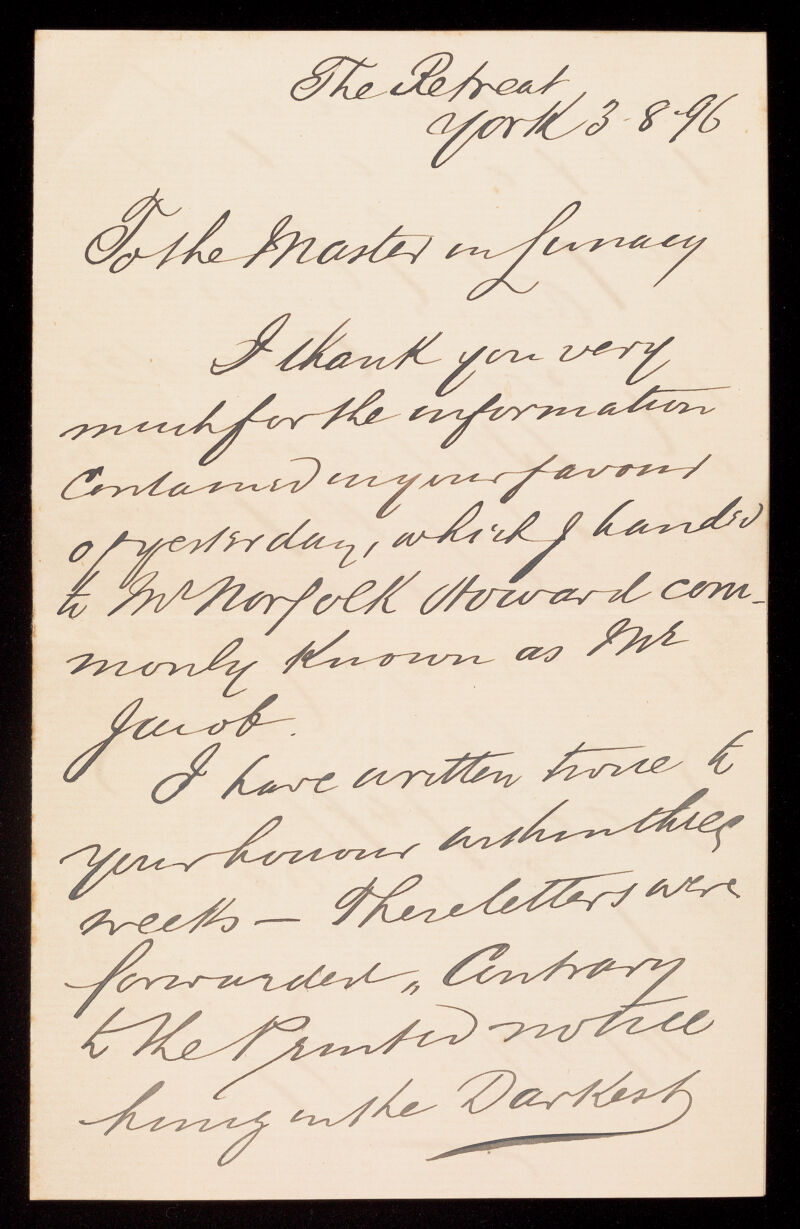 The Retreat
York 3-8-96
To the Master in Lunacy
I thank you very
much for the information
Contained in your favour
of yesterday, which I handed
to Mr Norfolk Howard com-
monly known as Mr
Jacob.
I have written twice to
your honour within three
weeks — These letters were
forwarded „ Contrary
to the Printed notice
hung in the Darkest